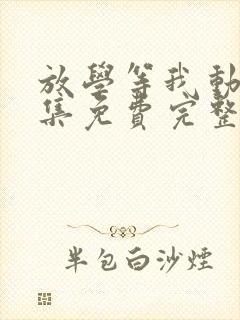 放學等我動
集免費完整
半包白沙煙